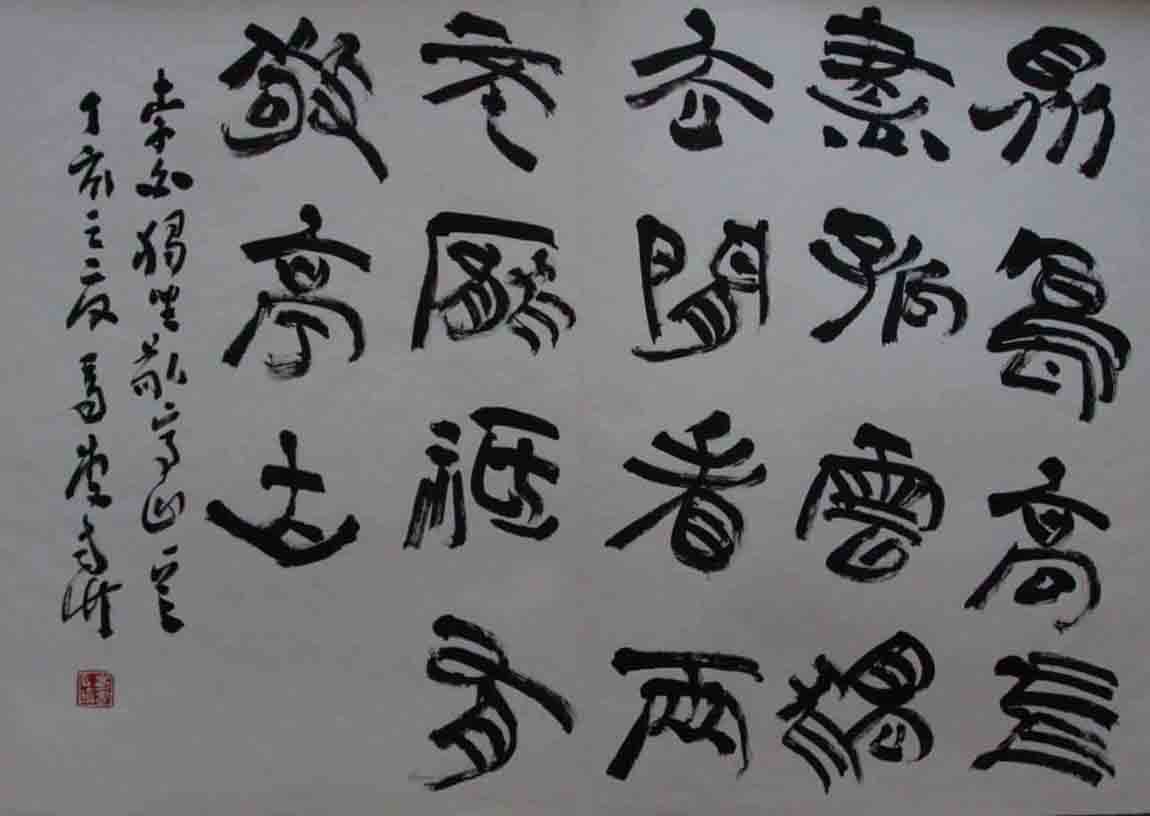 眾鳥高飛
盡孤雲獨
去閒看兩
不厭祇有
敬亭山
李白獨坐敬亭山一首
丁亥之夏馬